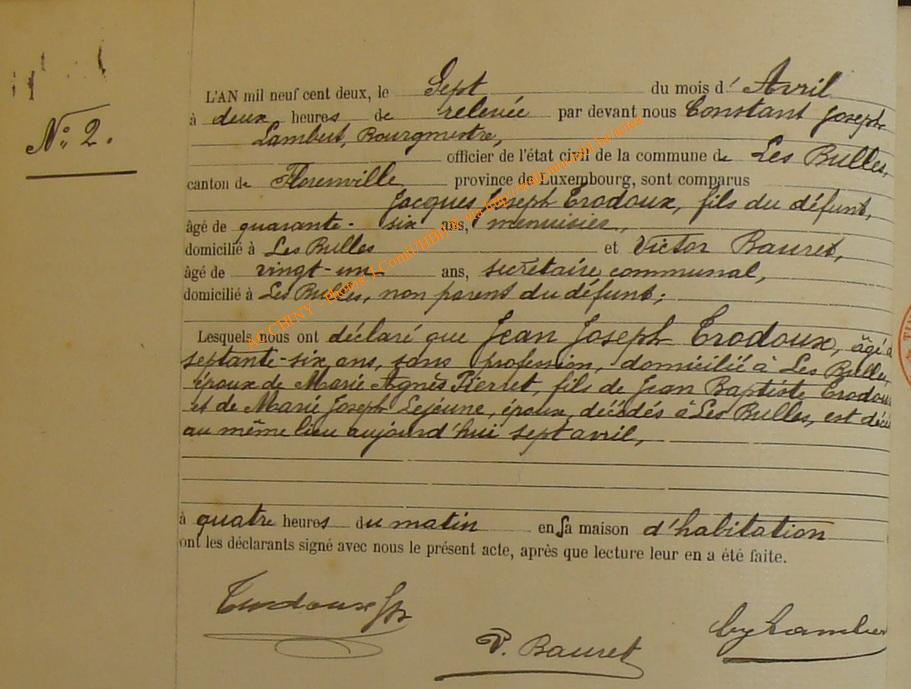 N° 2.
L'AN mil neuf cent deux, le Sept du mois d' Avril
à deux heures de relevée par devant nous Constant Joseph
Lambert, Bourgmestre,
officier de l'état civil de la commune de Les Bulles,
canton de Florenville province de Luxembourg, sont comparus
Jacques Joseph Trodoux, fils du défunt,
âgé de quarante-six ans, menuisier,
domicilié à Les Bulles et Victor Bauret,
âgé de vingt-un ans, secrétaire communal,
domicilié à Les Bulles, non parent du défunt;
Lesquels nous ont déclaré que Jean Joseph Trodoux, âgé
septante-six ans, sans profession, domicilié à Les Bulles,
époux de Marie Agnès Pierret, fils de Jean Baptiste Trodoux
et de Marie Joseph Lejeune, époux, décédés à Les Bulles, est
au même lieu aujourd'hui sept avril,
à quatre heures du matin en sa maison d'habitation
ont les déclarants signé avec nous le présent acte, après que lecture leur en a été faite.
Trodoux
V. Bauret